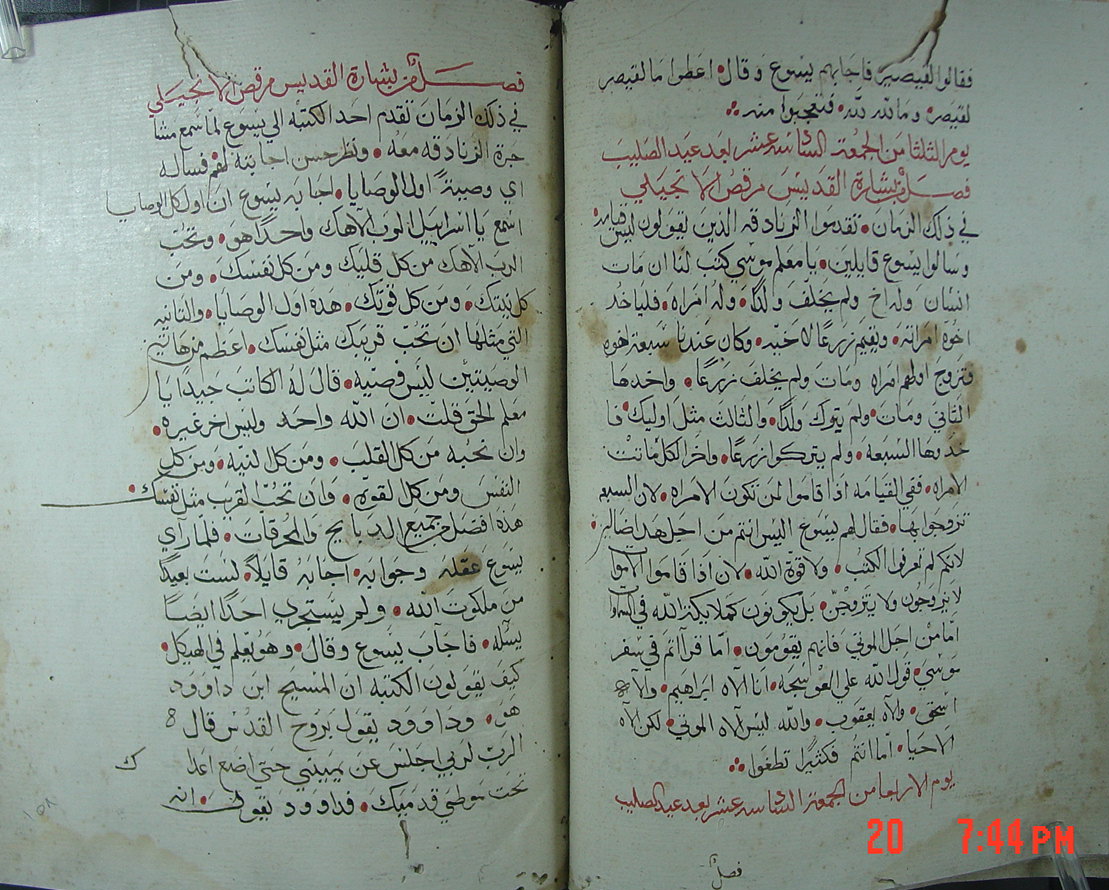 فقالوا لقيصر فاجابهم يسوع وقال اعطوا ما لقيصر
لقيصر وما لله لله فتعجبوا منه
يوم الثلثا من الجمعة السادسه عشر بعد عيد الصليب
فصل من بشارة القديس مرقص الانجيلي
في ذلك الزمان تقدموا الزنادقه الذين يقولون ليس قيامه
وسالوا يسوع قايلين يا معلم موسي كتب لنا ان مات
انسان وله اخ ولم يخلف ولدا وله امراه فلياخد
اخوه امراته ويقيم زرعا لاخيه وكان عندنا سبعة اخوه
فتزوج اولهم امراه ومات ولم يخلف زرعا واخدها
الثاني ومات ولم يترك ولدا والثالث مثل اوليك فا
خدوها السبعه ولم يتركوا زرعا واخر الكل ماتت
الامراه ففي القيامه اذا قاموا لمن تكون الامراه لان السبعه
تزوجوا بها فقال لهم يسوع اليس انتم من اجل هدا ضالين
لانكم لم تعرفوا الكتب ولا قوة الله لان اذا قاموا الاموات
لا يزوجون ولا يتزوجن بل يكونون كملايكة الله في السماوات
اما من اجل الموتي فانهم يقومون اما قراتم في سفر
موسي قول الله علي العوسجه انا الاه ابراهيم والاه
اسحق والاه يعقوب والله ليس الاه الموتي لكن الاه
الاحيا اما انتم فكثيرا تطغوا
يوم الاربعا من الجمعة السادسه عشر بعد عيد الصليب
فصل
فصل من بشارة القديس مرقص الانجيلي
في ذلك الزمان تقدم احد الكتبه الي يسوع لما سمع مشا
جرة الزنادقه معه ونظر حسن اجابته لهم فساله
اي وصية اول الوصايا اجابه يسوع ان اول كل الوصايا
اسمع يا اسراييل الرب الاهك واحدا هو وتحب
الرب الاهك من كل قلبك ومن كل نفسك ومن
كل نيتك ومن كل قوتك هده اول الوصايا والثانيه
التي مثلها ان تحب قريبك مثل نفسك اعظم من هاتين
الوصيتين ليس وصيه قال له الكاتب جيدا يا
معلم الحق قلت ان الله واحد وليس اخر غيره
وان تحبه من كل القلب ومن كل النيه ومن كل
النفس ومن كل القوه وان تحب القريب مثل نفسك
هده افضل من جميع الدبايح والمحرقات فلما راي
يسوع عقله وجوابه اجابه قايلا لست بعيدا
من ملكوت الله ولم يستجري احدا ايضا
يساله فاجاب يسوع وقال وهو يعلم في الهيكل
كيف يقولون الكتبه ان المسيح ابن داوود
هو وداوود يقول بروح القدس قال
الرب لربي اجلس عن يميني حتي اضع اعدا
ك
تحت موطي قدميك فداوود يقول انه
١٥٨
20 7:44 PM